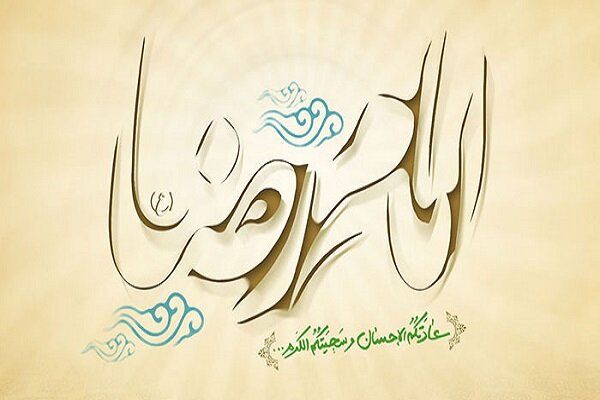 امام رضا (ع)
عادتکم الإحسان و سجیتکم الکرم...